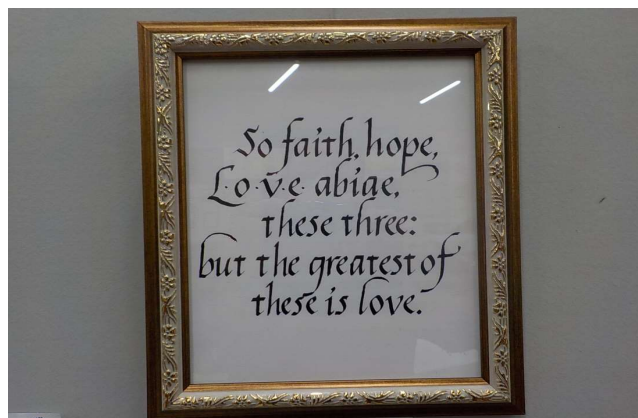 So faith, hope,
L·o·v·e· abide,
these three:
but the greatest of
these is love.